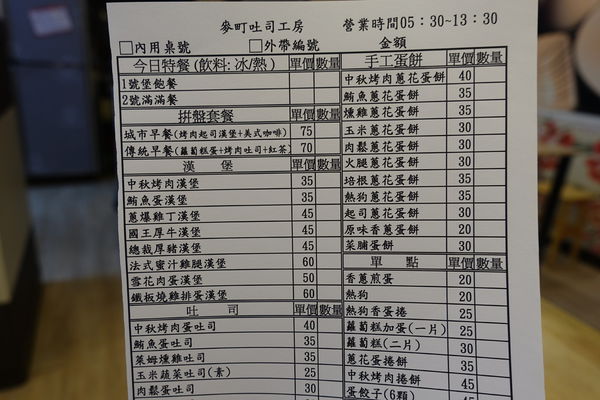 麥町吐司工房 營業時間05：30~13：30
□內用桌號 □外帶編號 金額
今日特餐(飲料:冰/熱) 單價 數量
1號堡飽餐
2號滿滿餐
拼盤套餐 單價 數量
城市早餐(烤肉起司漢堡+美式咖啡) 75
傳統早餐(蘿蔔糕+蛋+烤肉吐司+紅茶) 70
漢 堡 單價 數量
中秋烤肉漢堡 35
鮪魚蛋漢堡 35
蔥爆雞丁漢堡 45
國王厚牛漢堡 45
總裁厚豬漢堡 45
法式蜜汁雞腿漢堡 60
雪花肉蛋漢堡 50
鐵板燒雞排蛋漢堡 60
吐 司 單價 數量
中秋烤肉蛋吐司 40
鮪魚蛋吐司 35
萊姆燻雞吐司 35
玉米蔬菜吐司(素) 25
肉鬆蛋吐司 30
手工蛋餅 單價 數量
中秋烤肉蔥花蛋餅 40
鮪魚蔥花蛋餅 35
燻雞蔥花蛋餅 35
玉米蔥花蛋餅 30
肉鬆蔥花蛋餅 30
火腿蔥花蛋餅 30
培根蔥花蛋餅 35
熱狗蔥花蛋餅 35
起司蔥花蛋餅 30
原味香蔥蛋餅 20
菜脯蛋餅 30
單 點 單價 數量
香蔥煎蛋 20
熱狗 20
熱狗香蛋捲 25
蘿蔔糕加蛋(一片) 25
蘿蔔糕(二片) 30
蔥花蛋捲餅 35
中秋烤肉捲餅 45
蛋餃子(6顆)